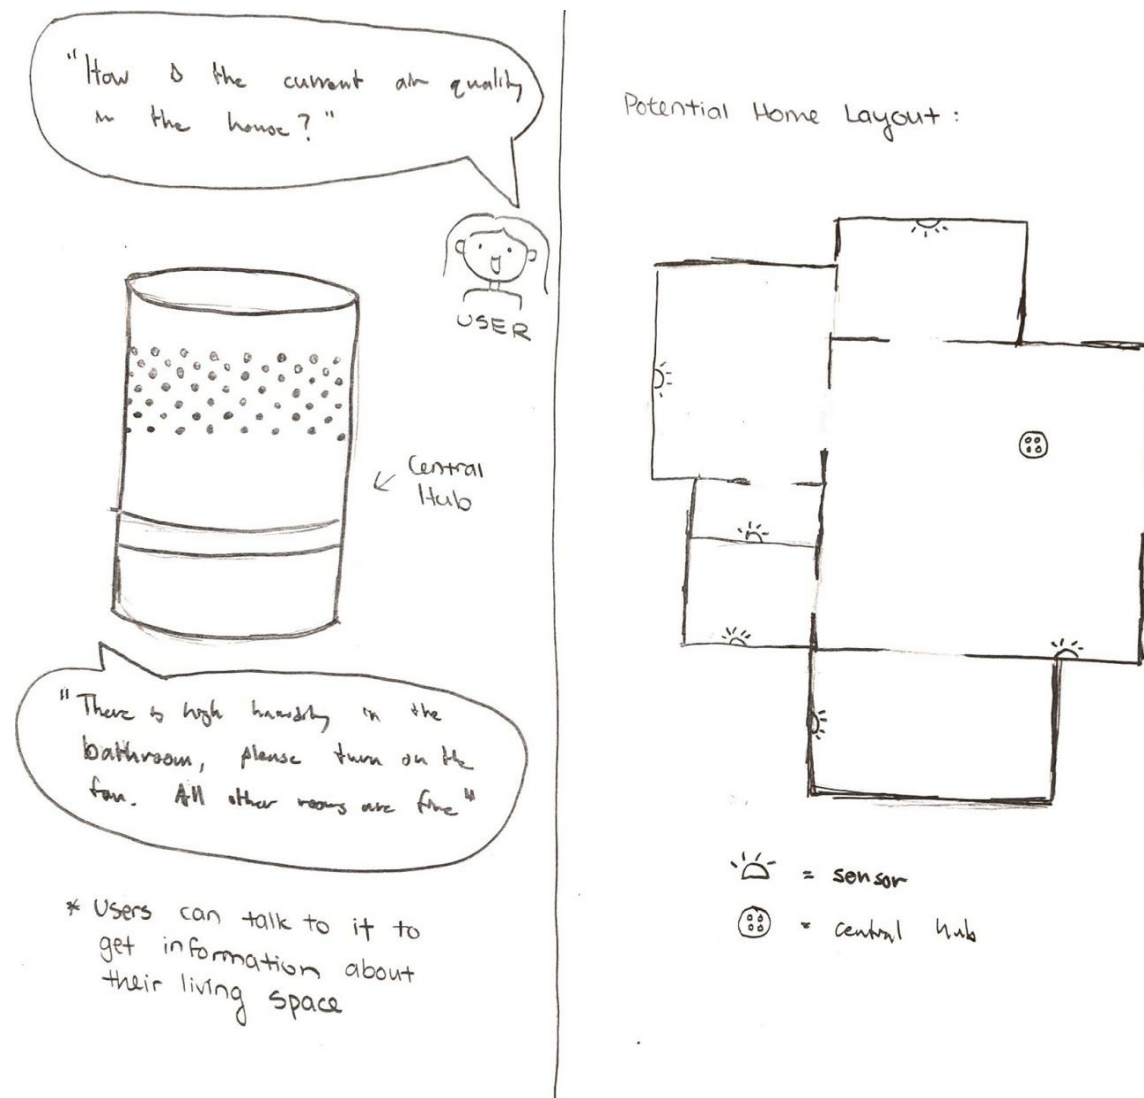 "How is the current air quality
in the house?"
USER
Central
Hub
"There is high humidity in the
bathroom, please turn on the
fan. All other rooms are fine"
* Users can talk to it to
get information about
their living space
Potential Home Layout :
= sensor
= central hub